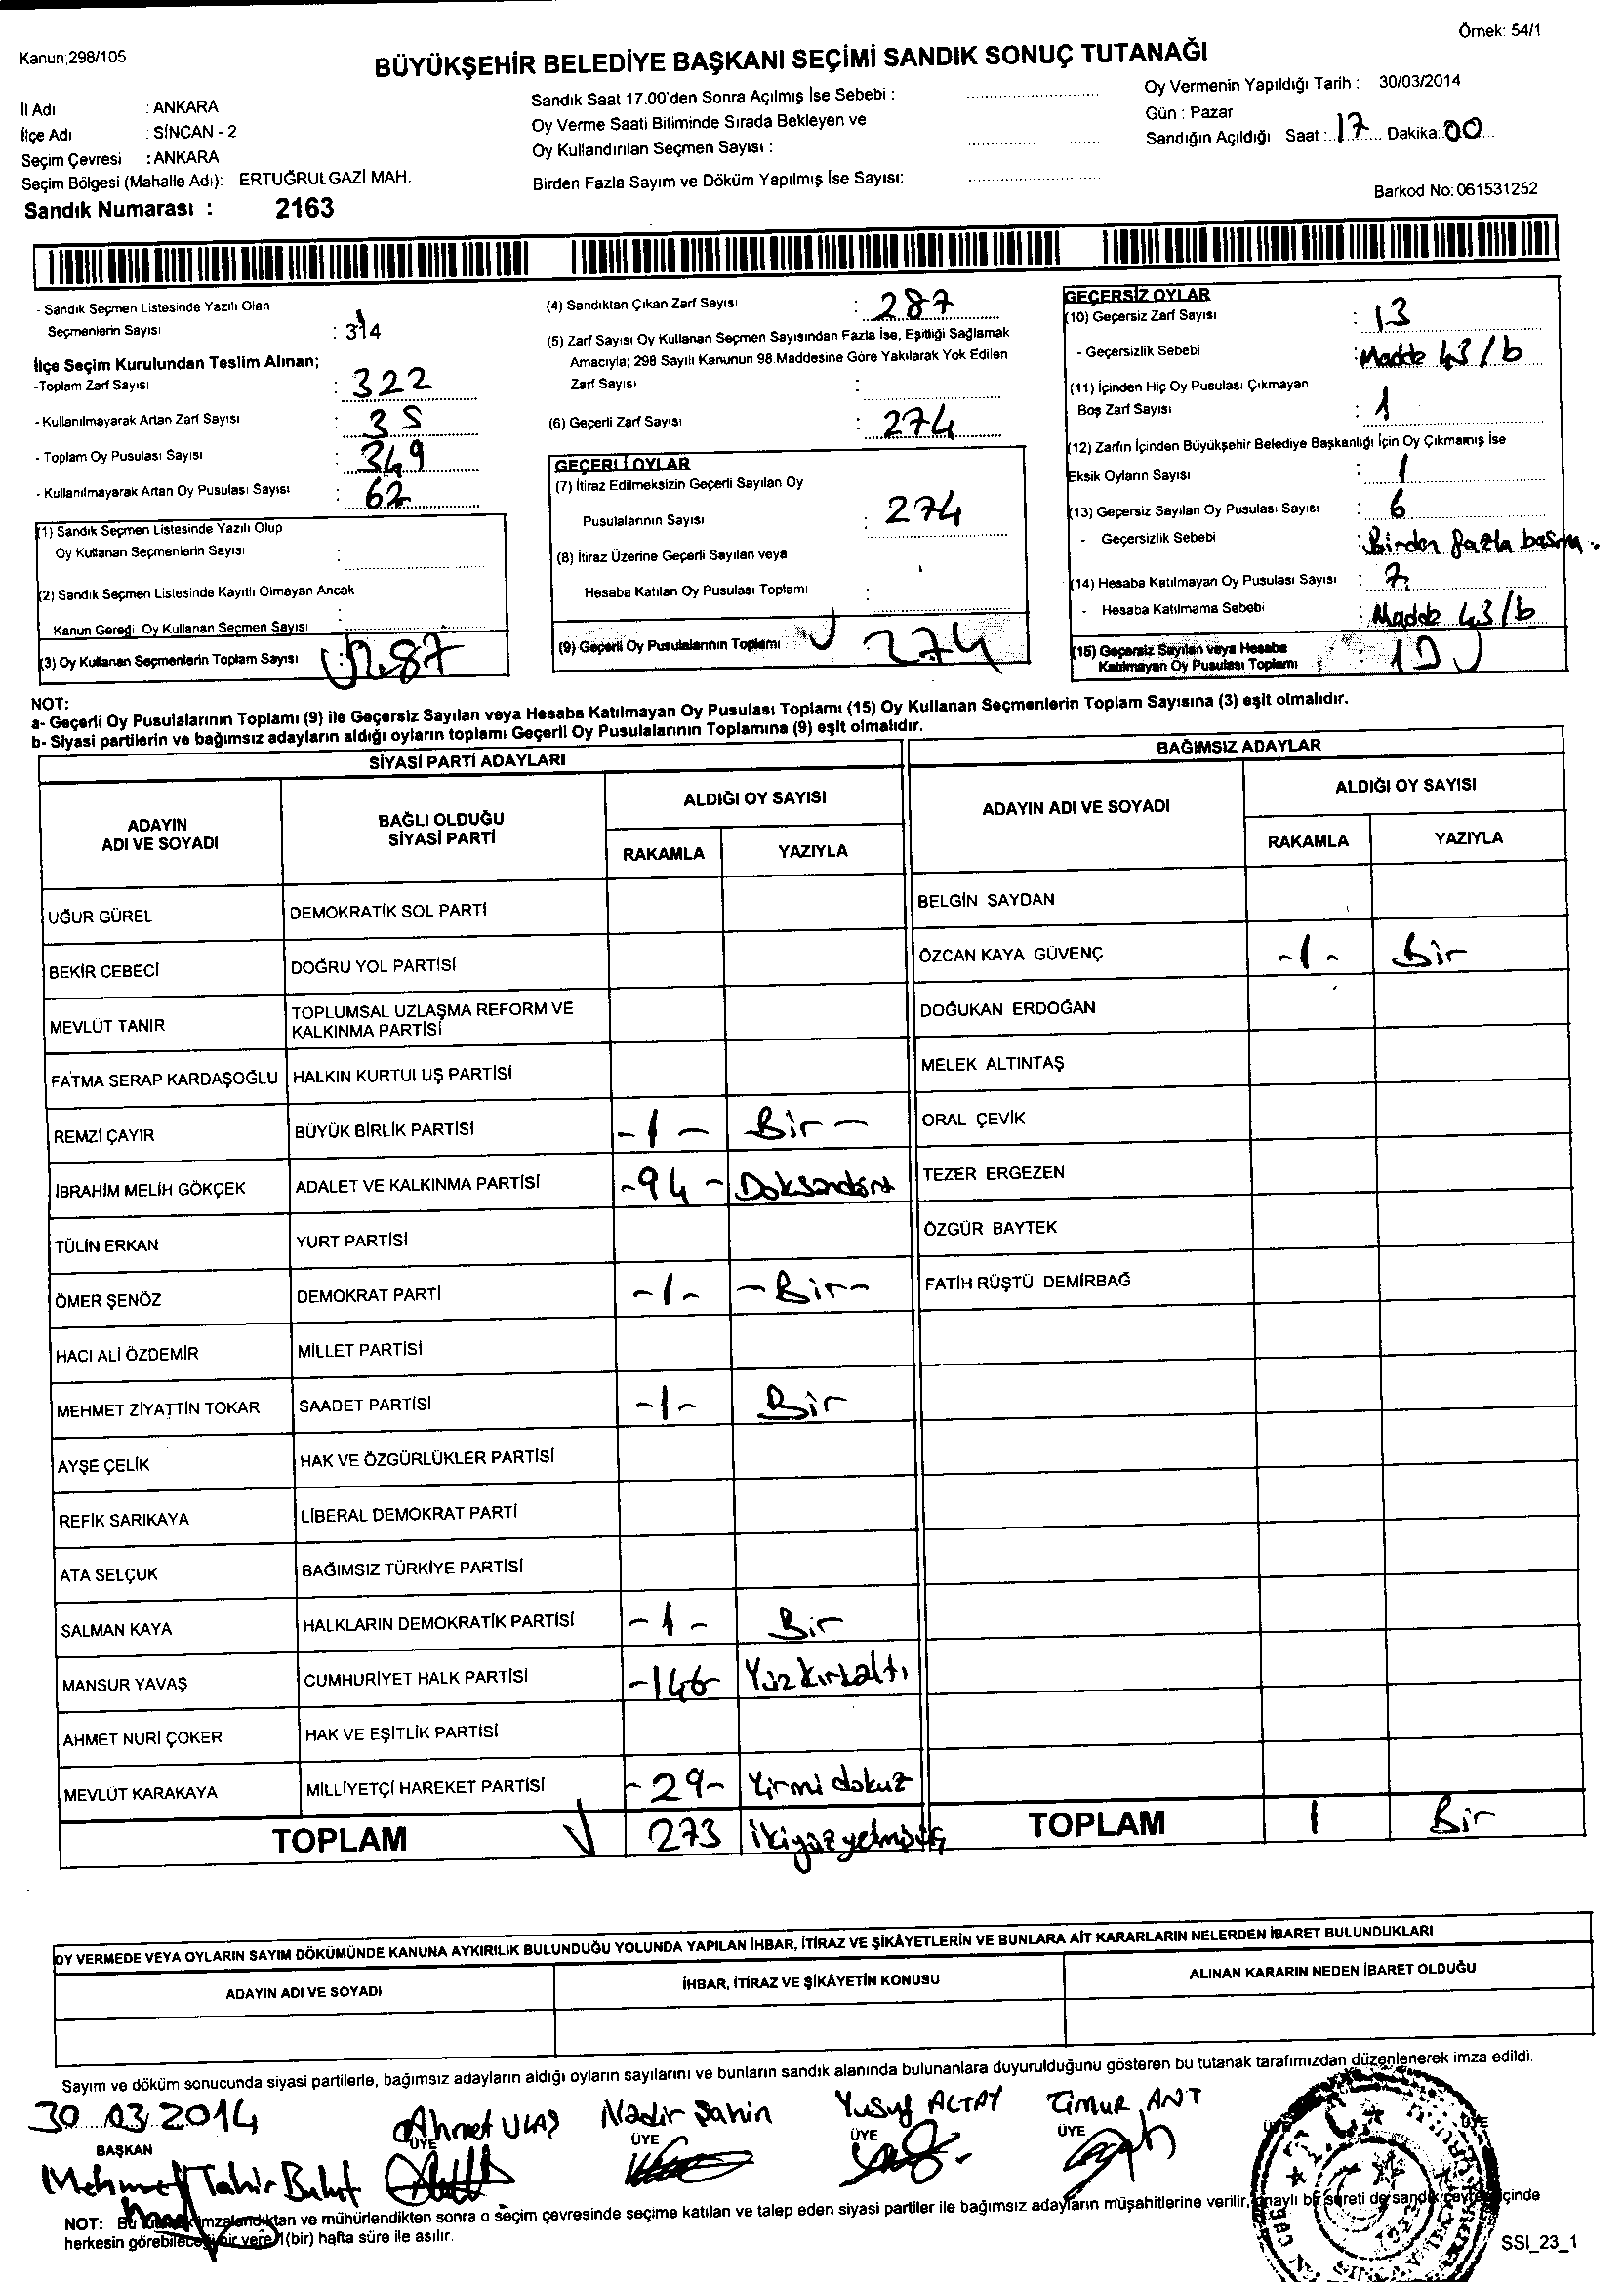 Örnek: 54/1
Kanun;298/105
BÜYÜKŞEHİR BELEDİYE BAŞKANI SEÇİMİ SANDIK SONUÇ TUTANAĞI
İl Adı : ANKARA
İlçe Adı : SİNCAN - 2
Seçim Çevresi : ANKARA
Seçim Bölgesi (Mahalle Adı): ERTUĞRULGAZİ MAH.
Sandık Numarası : 2163
Sandık Saat 17.00'den Sonra Açılmış İse Sebebi :
Oy Verme Saati Bitiminde Sırada Bekleyen ve
Oy Kullandırılan Seçmen Sayısı :
Birden Fazla Sayım ve Döküm Yapılmış İse Sayısı:
Oy Vermenin Yapıldığı Tarih : 30/03/2014
Gün : Pazar
Sandığın Açıldığı Saat : 17 Dakika: 00
Barkod No: 061531252
- Sandık Seçmen Listesinde Yazılı Olan
Seçmenlerin Sayısı : 314
İlçe Seçim Kurulundan Teslim Alınan;
-Toplam Zarf Sayısı : 322
- Kullanılmayarak Artan Zarf Sayısı : 35
- Toplam Oy Pusulası Sayısı : 349
- Kullanılmayarak Artan Oy Pusulası Sayısı : 62
(1) Sandık Seçmen Listesinde Yazılı Olup
Oy Kullanan Seçmenlerin Sayısı :
(2) Sandık Seçmen Listesinde Kayıtlı Olmayan Ancak
Kanun Gereği Oy Kullanan Seçmen Sayısı :
(3) Oy Kullanan Seçmenlerin Toplam Sayısı : 287
(4) Sandıktan Çıkan Zarf Sayısı : 287
(5) Zarf Sayısı Oy Kullanan Seçmen Sayısından Fazla İse, Eşitliği Sağlamak
Amacıyla; 298 Sayılı Kanunun 98.Maddesine Göre Yakılarak Yok Edilen
Zarf Sayısı :
(6) Geçerli Zarf Sayısı : 274
GEÇERLİ OYLAR
(7) İtiraz Edilmeksizin Geçerli Sayılan Oy
Pusulalarının Sayısı : 274
(8) İtiraz Üzerine Geçerli Sayılan veya
Hesaba Katılan Oy Pusulası Toplamı :
(9) Geçerli Oy Pusulalarının Toplamı 274
GEÇERSİZ OYLAR
(10) Geçersiz Zarf Sayısı : 13
- Geçersizlik Sebebi : Madde 43/b
(11) İçinden Hiç Oy Pusulası Çıkmayan
Boş Zarf Sayısı : 1
(12) Zarfın İçinden Büyükşehir Belediye Başkanlığı İçin Oy Çıkmamış İse
Eksik Oyların Sayısı : 1
(13) Geçersiz Sayılan Oy Pusulası Sayısı : 6
- Geçersizlik Sebebi : Birden fazla basma.
(14) Hesaba Katılmayan Oy Pusulası Sayısı : 7
- Hesaba Katılmama Sebebi : Madde 43/b
(15) Geçersiz Sayılan veya Hesaba
Katılmayan Oy Pusulası Toplamı :
NOT:
a- Geçerli Oy Pusulalarının Toplamı (9) ile Geçersiz Sayılan veya Hesaba Katılmayan Oy Pusulası Toplamı (15) Oy Kullanan Seçmenlerin Toplam Sayısına (3) eşit olmalıdır.
b- Siyasi partilerin ve bağımsız adayların aldığı oyların toplamı Geçerli Oy Pusulalarının Toplamına (9) eşit olmalıdır.
SİYASİ PARTİ ADAYLARI
ADAYIN
ADI VE SOYADI
BAĞLI OLDUĞU
SİYASİ PARTİ
ALDIĞI OY SAYISI
RAKAMLA YAZIYLA
UĞUR GÜREL DEMOKRATİK SOL PARTİ
BEKİR CEBECİ DOĞRU YOL PARTİSİ
MEVLÜT TANIR TOPLUMSAL UZLAŞMA REFORM VE
KALKINMA PARTİSİ
FATMA SERAP KARDAŞOĞLU HALKIN KURTULUŞ PARTİSİ
REMZİ ÇAYIR BÜYÜK BİRLİK PARTİSİ -1- Bir-
İBRAHİM MELİH GÖKÇEK ADALET VE KALKINMA PARTİSİ -94- Doksandört
TÜLİN ERKAN YURT PARTİSİ
ÖMER ŞENÖZ DEMOKRAT PARTİ -1- -Bir-
HACI ALİ ÖZDEMİR MİLLET PARTİSİ
MEHMET ZİYATTİN TOKAR SAADET PARTİSİ -1- Bir
AYŞE ÇELİK HAK VE ÖZGÜRLÜKLER PARTİSİ
REFİK SARIKAYA LİBERAL DEMOKRAT PARTİ
ATA SELÇUK BAĞIMSIZ TÜRKİYE PARTİSİ
SALMAN KAYA HALKLARIN DEMOKRATİK PARTİSİ -1- Bir
MANSUR YAVAŞ CUMHURİYET HALK PARTİSİ -146- Yüzkırkaltı
AHMET NURİ ÇOKER HAK VE EŞİTLİK PARTİSİ
MEVLÜT KARAKAYA MİLLİYETÇİ HAREKET PARTİSİ -29- Yirmidokuz
TOPLAM 273 ikiyüzyetmişüç
BAĞIMSIZ ADAYLAR
ADAYIN ADI VE SOYADI
ALDIĞI OY SAYISI
RAKAMLA YAZIYLA
BELGİN SAYDAN
ÖZCAN KAYA GÜVENÇ -1- Bir
DOĞUKAN ERDOĞAN
MELEK ALTINTAŞ
ORAL ÇEVİK
TEZER ERGEZEN
ÖZGÜR BAYTEK
FATİH RÜŞTÜ DEMİRBAĞ
TOPLAM 1 Bir
OY VERMEDE VEYA OYLARIN SAYIM DÖKÜMÜNDE KANUNA AYKIRILIK BULUNDUĞU YOLUNDA YAPILAN İHBAR, İTİRAZ VE ŞİKÂYETLERİN VE BUNLARA AİT KARARLARIN NELERDEN İBARET BULUNDUKLARI
ADAYIN ADI VE SOYADI İHBAR, İTİRAZ VE ŞİKÂYETİN KONUSU ALINAN KARARIN NEDEN İBARET OLDUĞU
Sayım ve döküm sonucunda siyasi partilerle, bağımsız adayların aldığı oyların sayılarını ve bunların sandık alanında bulunanlara duyurulduğunu gösteren bu tutanak tarafımızdan düzenlenerek imza edildi.
30.03.2014 Ahmet ULAŞ Nadir Şahin Yusuf ALTAY Timur ANT
BAŞKAN ÜYE ÜYE ÜYE ÜYE ÜYE
Mehmet Tahir Bulut
NOT: Bu imzalandıktan ve mühürlendikten sonra o seçim çevresinde seçime katılan ve talep eden siyasi partiler ile bağımsız adayların müşahitlerine verilir, onaylı bir sureti de sandık çevresi içinde
herkesin görebileceği bir yere 1(bir) hafta süre ile asılır.
SSI_23_1